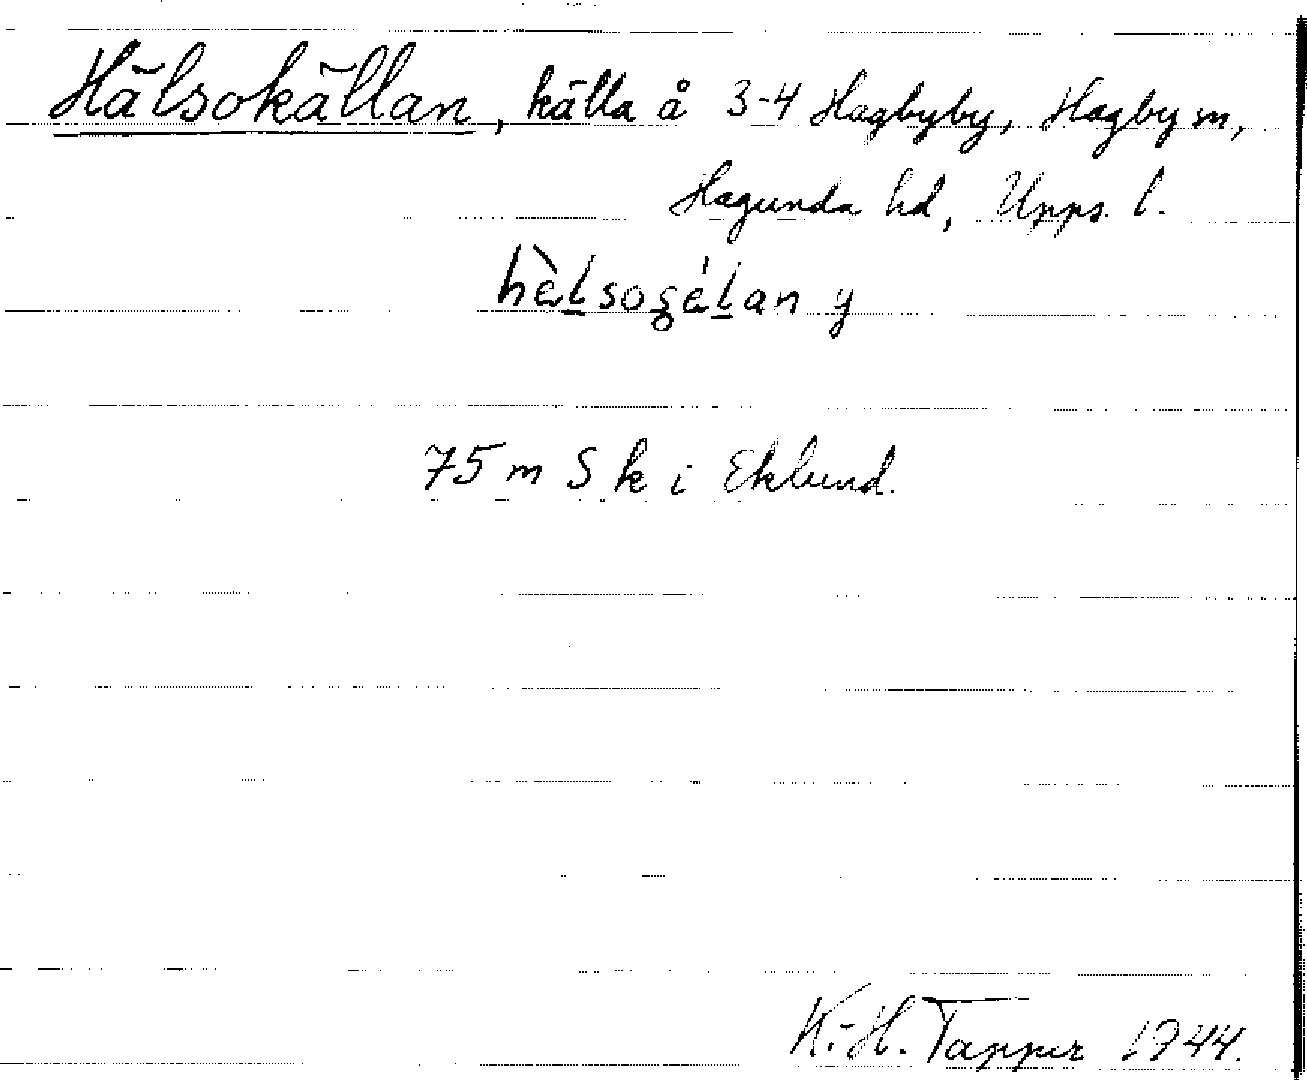 Hälsokällan, källa å 3-4 Hagbyby, Hagby sn,
Hagunda hd, Upps. l.
y
75 m S k i Eklund.
K.-H. Tapper 1944.